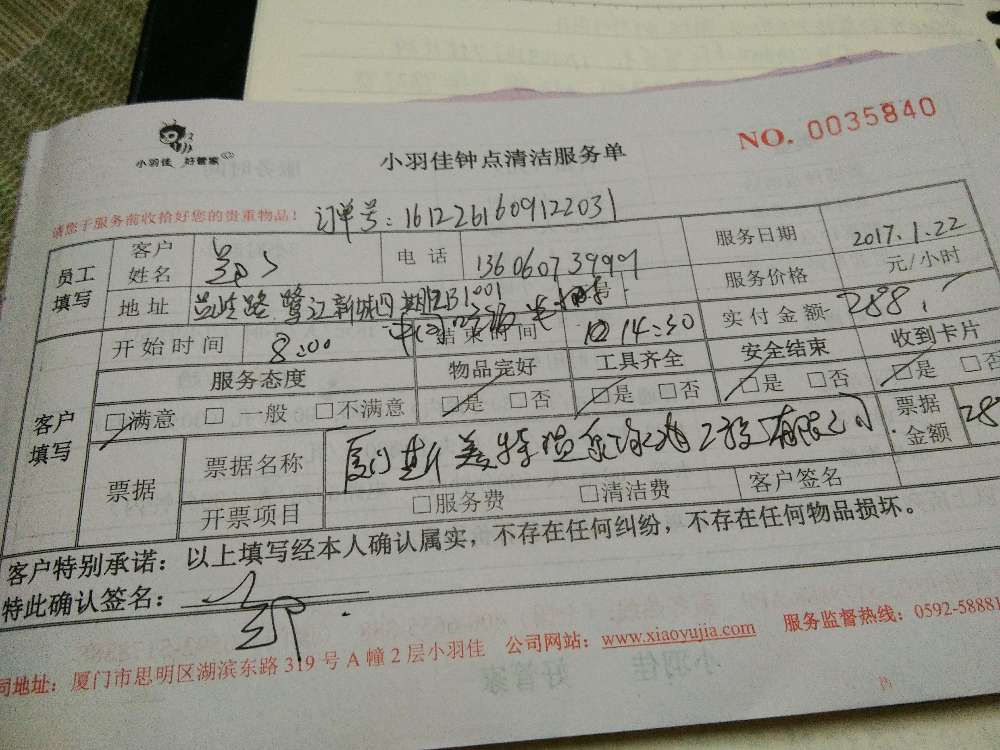 小羽佳 好管家
小羽佳钟点清洁服务单
NO. 0035840
请您于服务前收拾好您的贵重物品！
订单号：1612261609122031
员工填写
客户姓名
电话
服务日期 2017.1.22
地址 路鹭江新城四期
服务价格 元/小时
客户填写
开始时间 8:00
结束时间 14:30
实付金额 288.
服务态度 物品完好 工具齐全 安全结束 收到卡片
□满意 □一般 □不满意 □是 □否 □是 □否 □是 □否 □是 □否
票据
票据名称 厦门斯美特 有限公司
票据金额 28
开票项目 □服务费 □清洁费 客户签名
客户特别承诺：以上填写经本人确认属实，不存在任何纠纷，不存在任何物品损坏。
特此确认签名：
司地址：厦门市思明区湖滨东路319号A幢2层小羽佳 公司网站：www.xiaoyujia.com 服务监督热线：0592-58881